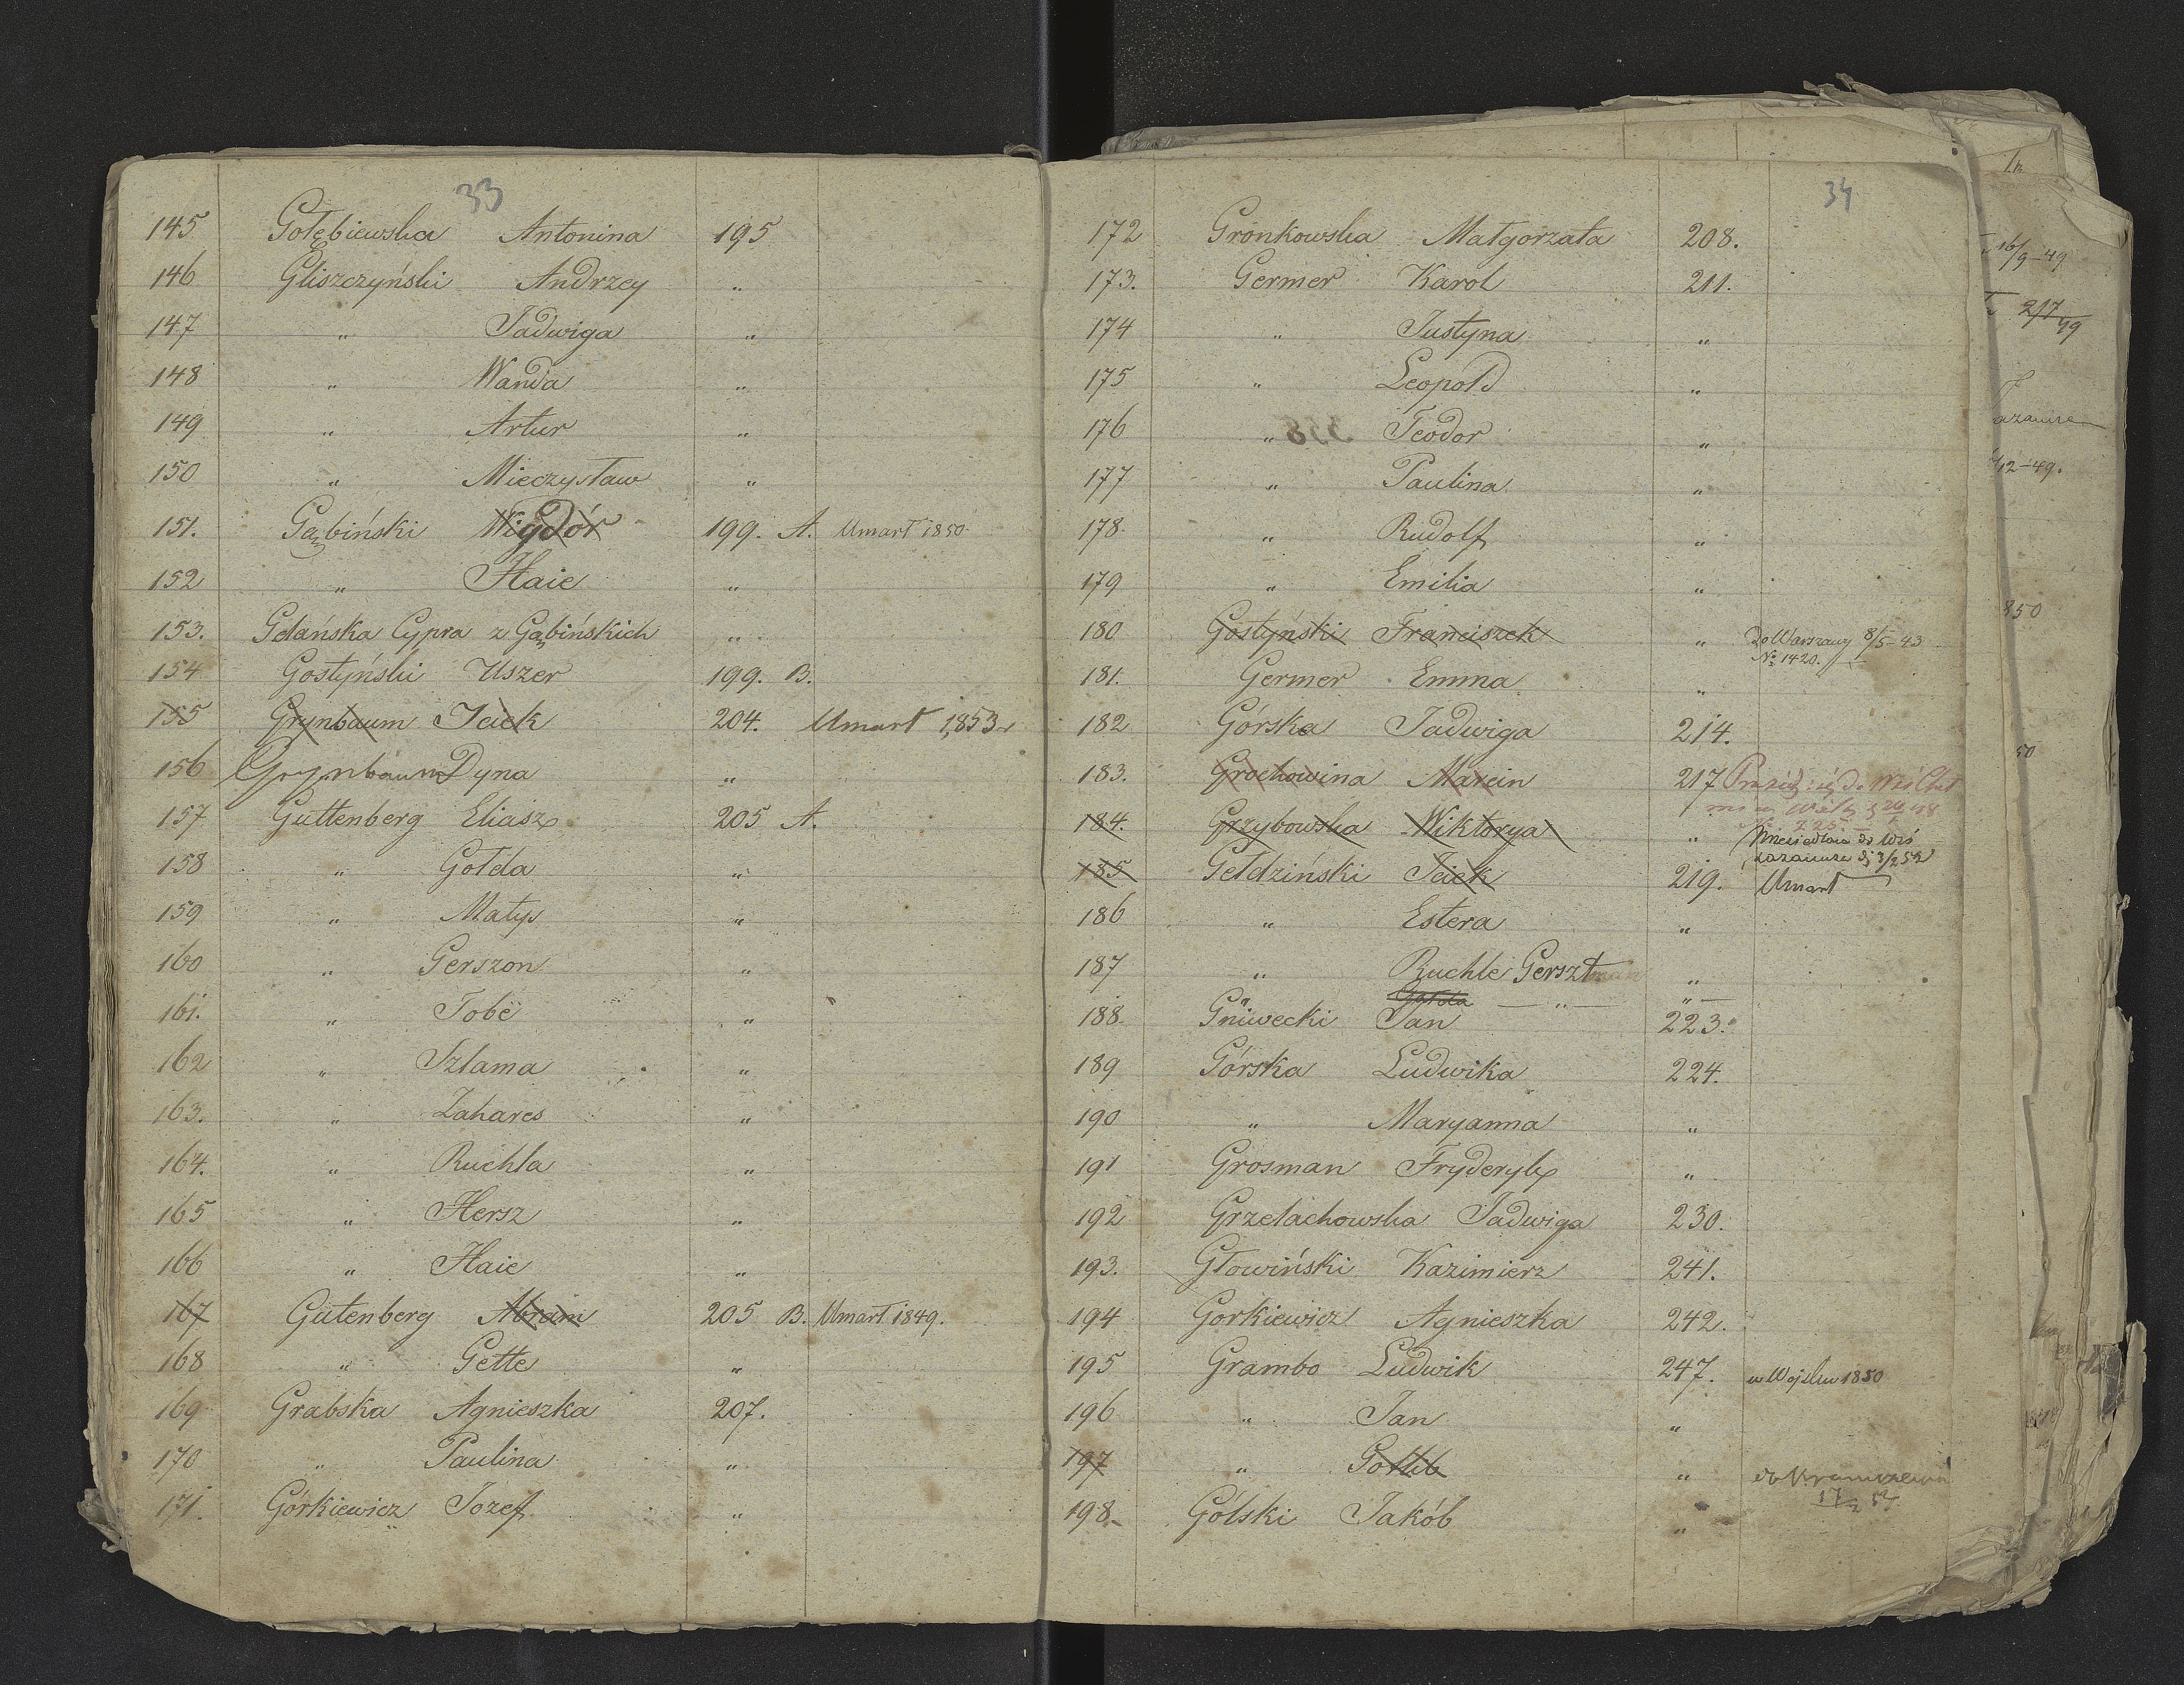 33
145 Gołębiewska Antonina 195
146 Gliszczyński Andrzey "
147 " Jadwiga "
148 " Wanda "
149 " Artur "
150 " Mieczysław "
151. Gąbiński Wigdór 199. A. Umarł 1850
152 " Haie "
153. Gdańska Cypra z Gąbińskich "
154 Gostyński Uszer 199. B.
155 Grynbaum Icik 204. Umarł 1853
156 Grynbaum Dyna "
157 Guttenberg Eliasz 205 A.
158 " Gołda "
159 " Matys "
160 " Gerszon "
161. " Tobe "
162 " Szlama "
163. " Zahares "
164. " Ruchla "
165 " Hersz "
166 " Haie "
167 Gutenberg Abram 205 B. Umarł 1849.
168 " Gette "
169 Grabska Agnieszka 207.
170 " Paulina "
171. Górkiewicz Jozef "
34
172 Gronkowska Małgorzata 208.
173. Germer Karol 211.
174 " Justyna "
175 " Leopold "
176 " Teodor "
177 " Paulina "
178. " Rudolf "
179 " Emilia "
180 Gostyński Franciszek " do Warszawy 8/5-43
№ 1420.
181. Germer Emma "
182 Górska Jadwiga 214.
183. Grochowina Marcin 217
184. Grzybowska Wiktorya " do Wsi
Łazaiura d 3/2 52
185 Gełdziński Icik 219. Umarł
186 " Estera "
187 " Ruchle Gersztman "
Gołda — " — "
188. Gniwecki Jan 223.
189 Górska Ludwika 224.
190 " Maryanna "
191 Grosman Fryderyk "
192 Grzelachowska Jadwiga 230.
193. Głowiński Kazimierz 241.
194 Gorkiewicz Agnieszka 242.
195 Grambo Ludwik 247. w Wojsku 1850
196 " Jan "
197 " Gotlib " do
17/2 54
198. Gólski Jakób "
16/9-49
12-49.
850
50